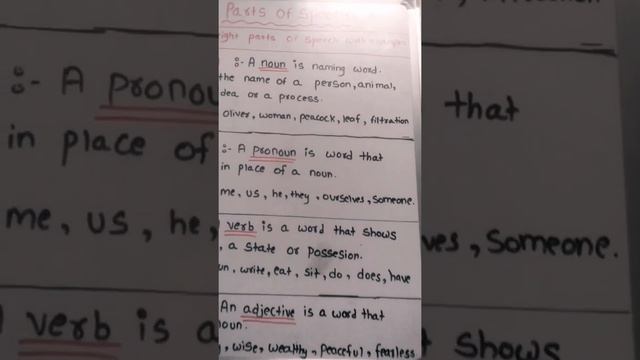 Parts of Speech
parts of speech with
:- A noun is naming word.
the name of a person, animal,
dea or a process.
oliver, woman, peacock, leaf, filtration
:- A pronoun is word that
in place of a noun.
me, us, he, they, ourselves, someone.
verb is a word that shows
, a state or possesion.
un, write, eat, sit, do, does, have
An adjective is a word that
oun.
, wise, wealthy, peaceful, fearless